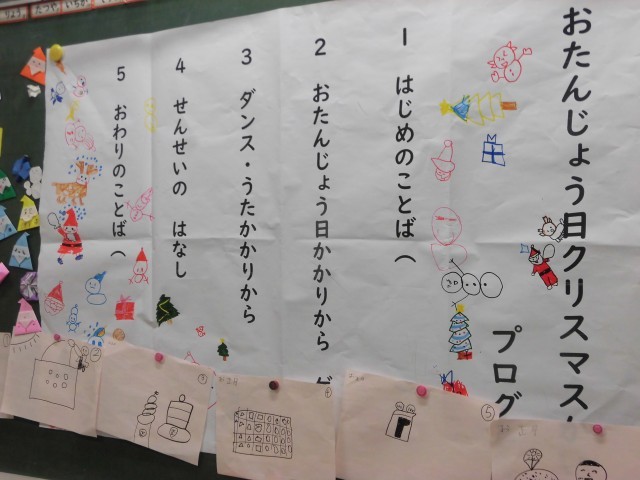 おたんじょう日クリスマス
プログ
1 はじめのことば（
2 おたんじょう日かかりから
3 ダンス・うたかかりから
4 せんせいの はなし
5 おわりのことば（
たつや
いちか
⑤